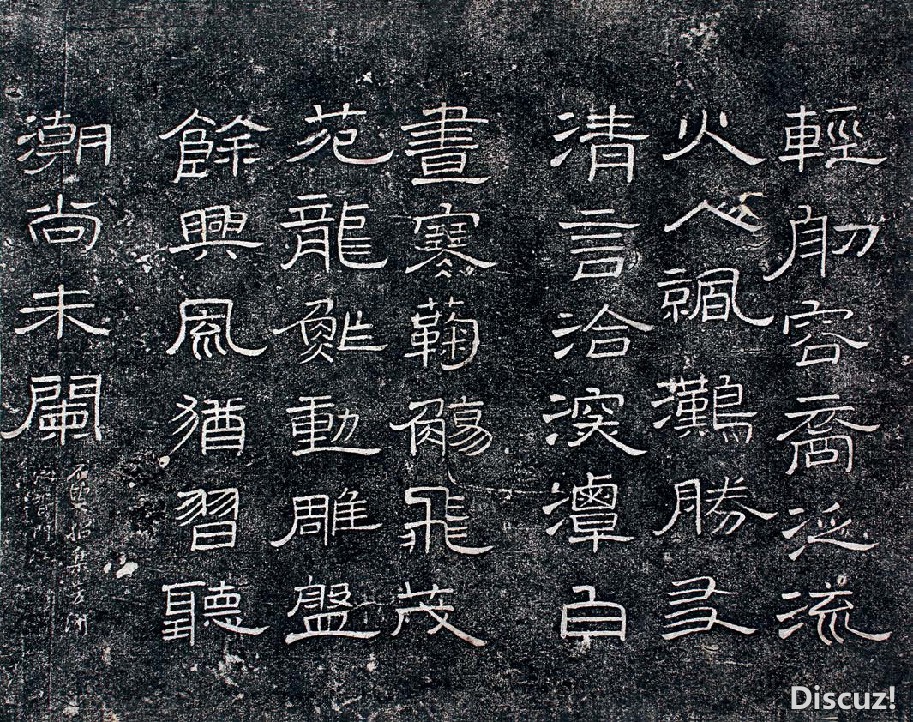 輕舠容裔泛流
火灘勝友
清言洽深潭白
晝寒鞠觴飛茂
苑龍鮓動雕盤
餘興風猶習聽
潮尚未闌
Discuz!